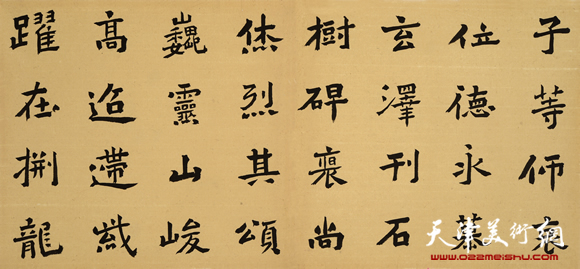 子等仰哀
仁德永慕
玄澤刊石
樹碑褒尚
烋烈其頌
巍靈山峻
高迢遰或
躍在淵龍
天津美術網
www.022meishu.com